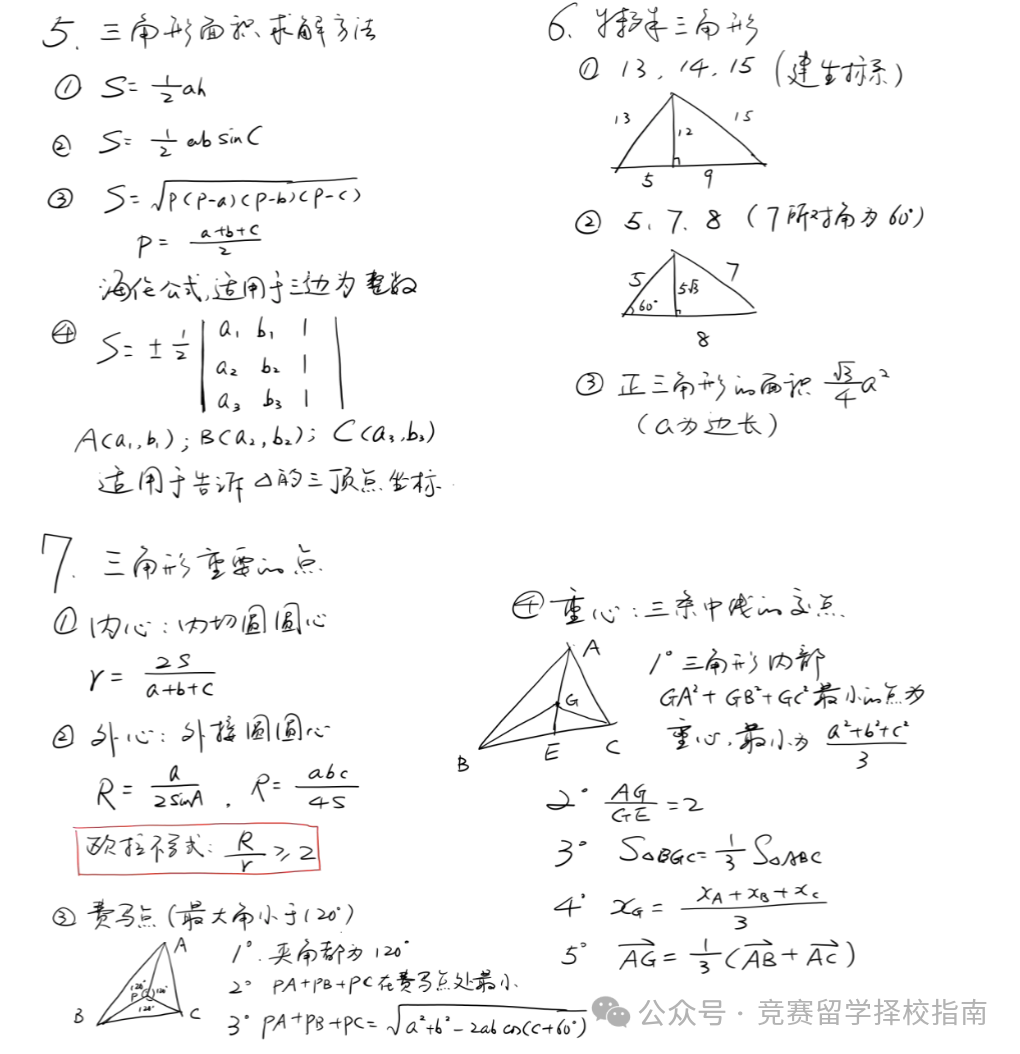 5. 三角形面积求解方法
① S= 1/2 ah
② S= 1/2 ab sinC
③ S=√(P(P-a)(P-b)(P-c))
P= (a+b+c)/2
海伦公式,适用于三边为整数
④ S= ± 1/2 | a₁ b₁ 1 |
| a₂ b₂ 1 |
| a₃ b₃ 1 |
A(a₁,b₁); B(a₂,b₂); C(a₃,b₃)
适用于告诉△的三顶点坐标.
6. 特殊三角形
① 13, 14, 15 (建坐标系)
13 12 15
5 9
② 5、7、8 (7所对角为60°)
5 5√3 7
60°
8
③ 正三角形的面积 √3/4 a²
(a为边长)
7. 三角形重要的点
① 内心: 内切圆圆心
r= 2S/(a+b+c)
② 外心: 外接圆圆心
R= a/(2sinA) , R= abc/(4S)
欧拉不等式: R/r ≥2
③ 费马点 (最大角小于120°)
A
120° P 120°
120°
B C
1° 夹角都为120°
2° PA+PB+PC在费马点处最小
3° PA+PB+PC=√(a²+b²-2ab cos(C+60°))
④ 重心: 三条中线的交点
A
G
B E C
1° 三角形内部
GA²+GB²+GC²最小的点为
重心,最小为 (a²+b²+c²)/3
2° AG/GE =2
3° S△BGC= 1/3 S△ABC
4° x_G= (x_A+x_B+x_C)/3
5° AG→= 1/3 (AB→+AC→)
公众号 · 竞赛留学择校指南